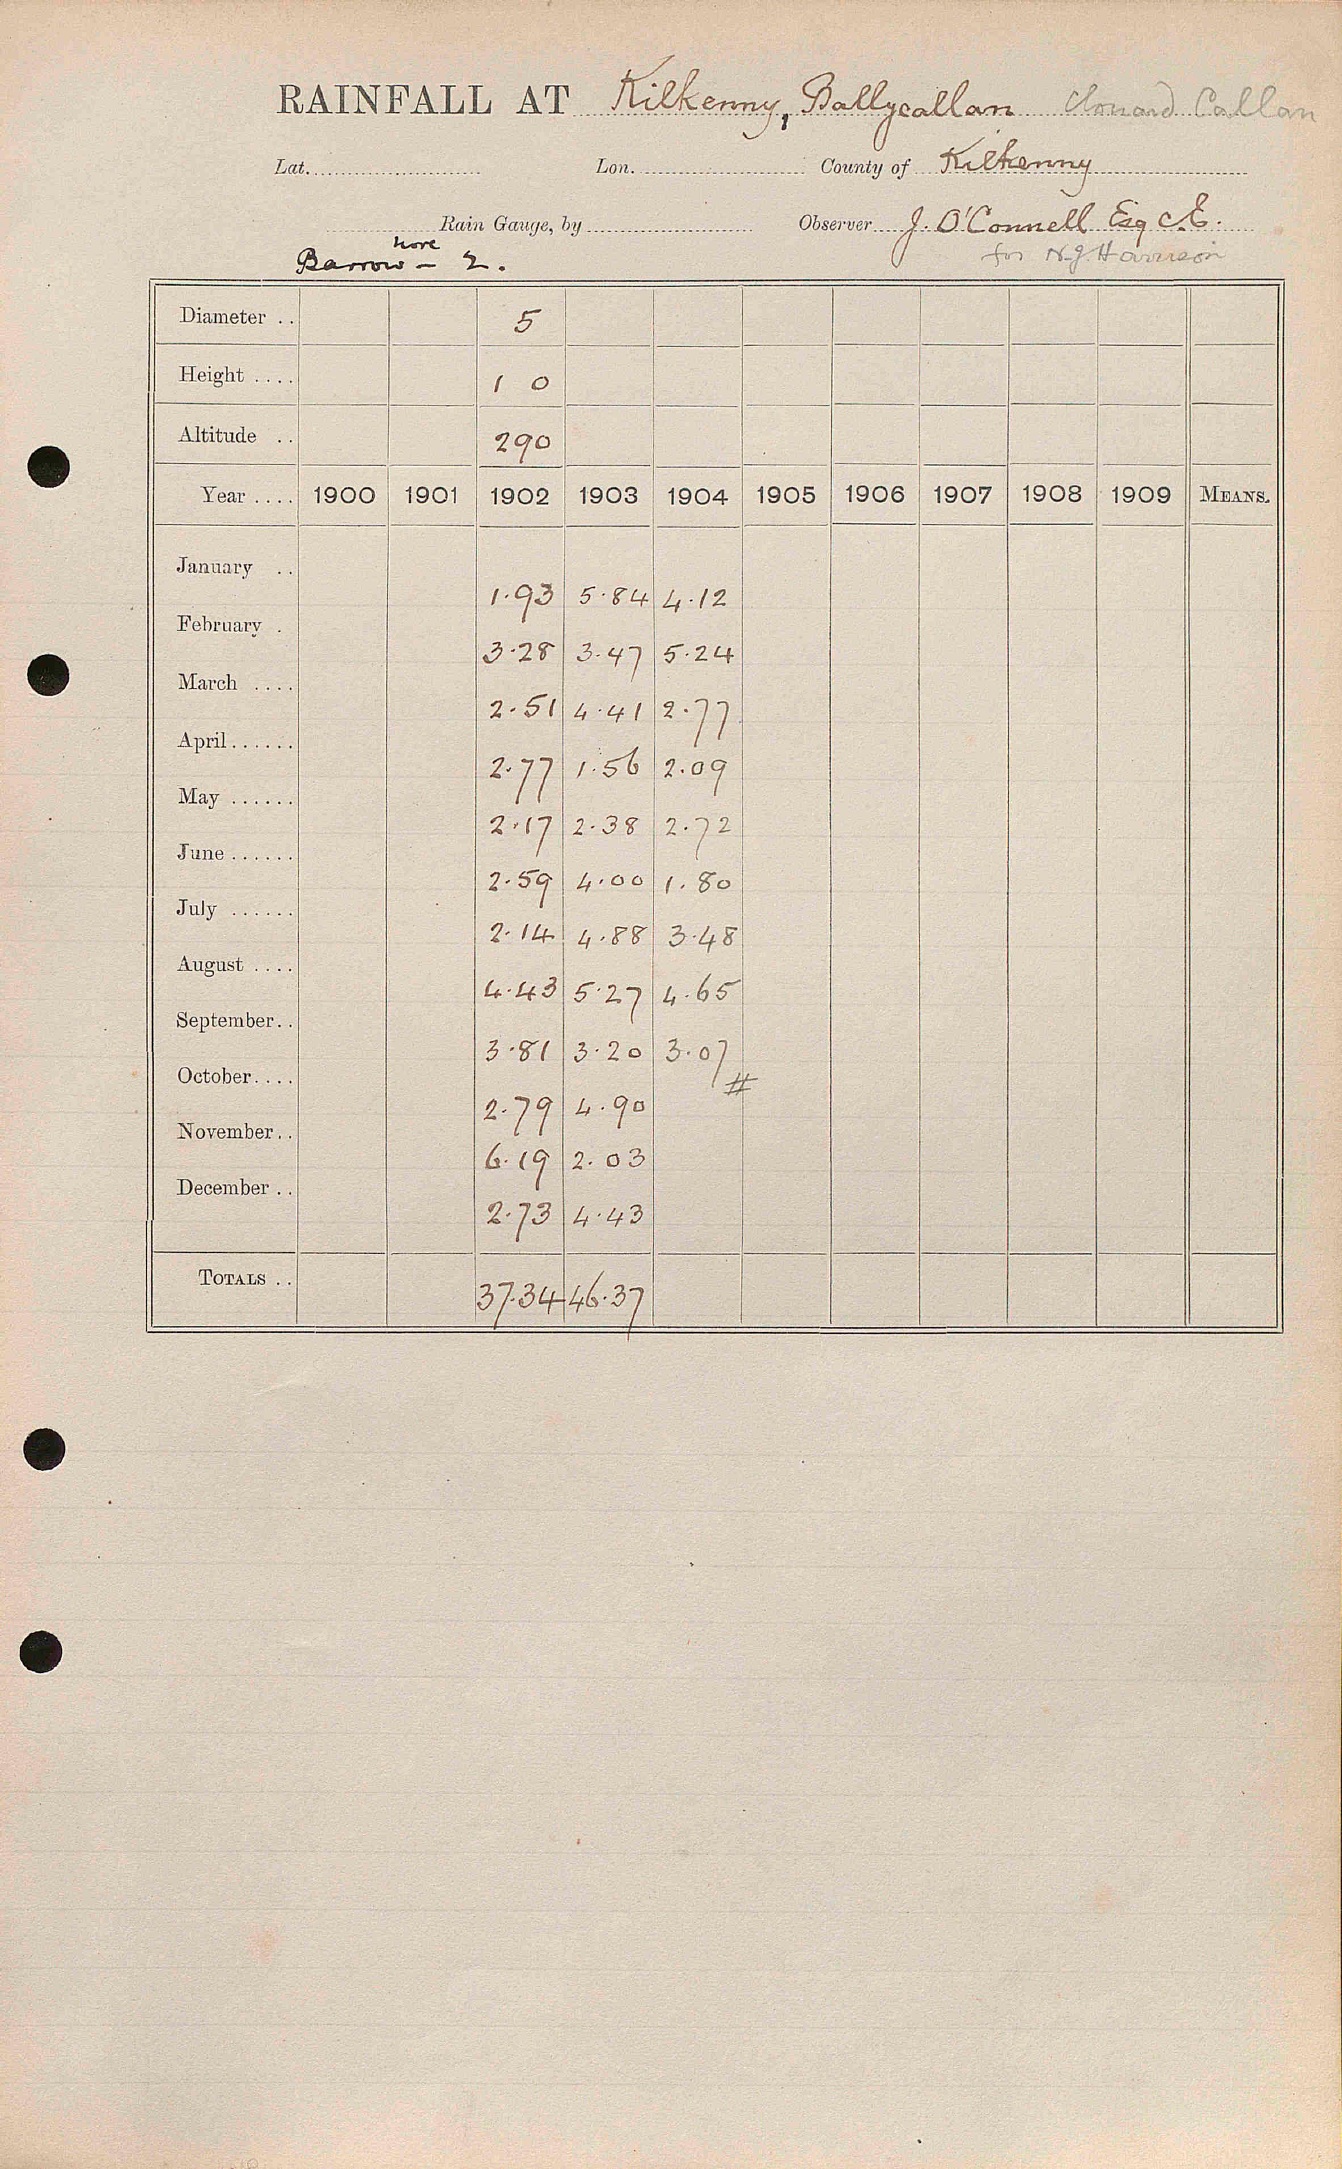 RAINFALL AT Kilkenny, Ballycallan Clonard Callan
Lat. Lon. County of Kilkenny
Rain Gauge, by Observer J. O'Connell Esq C.E.
Nore for N.J. Harrison
Barrow - 2.
Diameter .. 5
Height .... 1 0
Altitude .. 290
Year .... 1900 1901 1902 1903 1904 1905 1906 1907 1908 1909 MEANS.
January .. 1.93 5.84 4.12
February . 3.28 3.47 5.24
March .... 2.51 4.41 2.77
April...... 2.77 1.56 2.09
May ...... 2.17 2.38 2.72
June ...... 2.59 4.00 1.80
July ...... 2.14 4.88 3.48
August .... 4.43 5.27 4.65
September.. 3.81 3.20 3.07
#
October.... 2.79 4.90
November.. 6.19 2.03
December .. 2.73 4.43
TOTALS .. 37.34 46.37